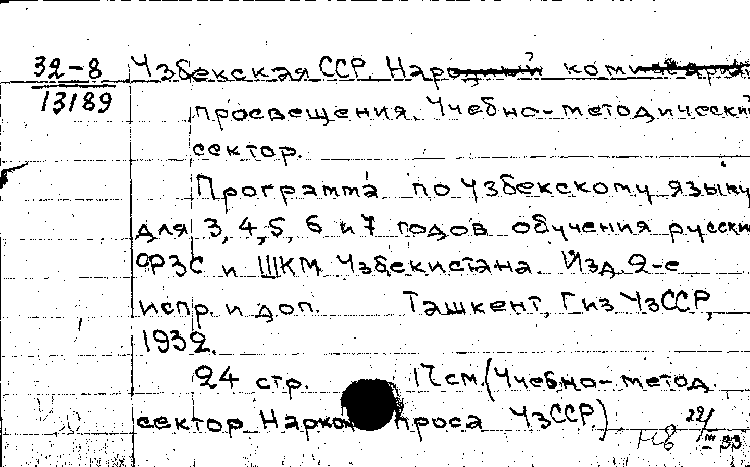 32-8
13189
Узбекская ССР. Народный комиссариат
просвещения. Учебно-методический
сектор.
Программа по узбекскому языку
для 3, 4, 5, 6 и 7 годов обучения русски
ФЗС и ШКМ Узбекистана. Изд. 2-е
испр. и доп. Ташкент, Гиз УзССР,
1932.
24 стр. 17 см. (Учебно-метод.
сектор Наркомпроса УзССР.)
Н8 22/III 33